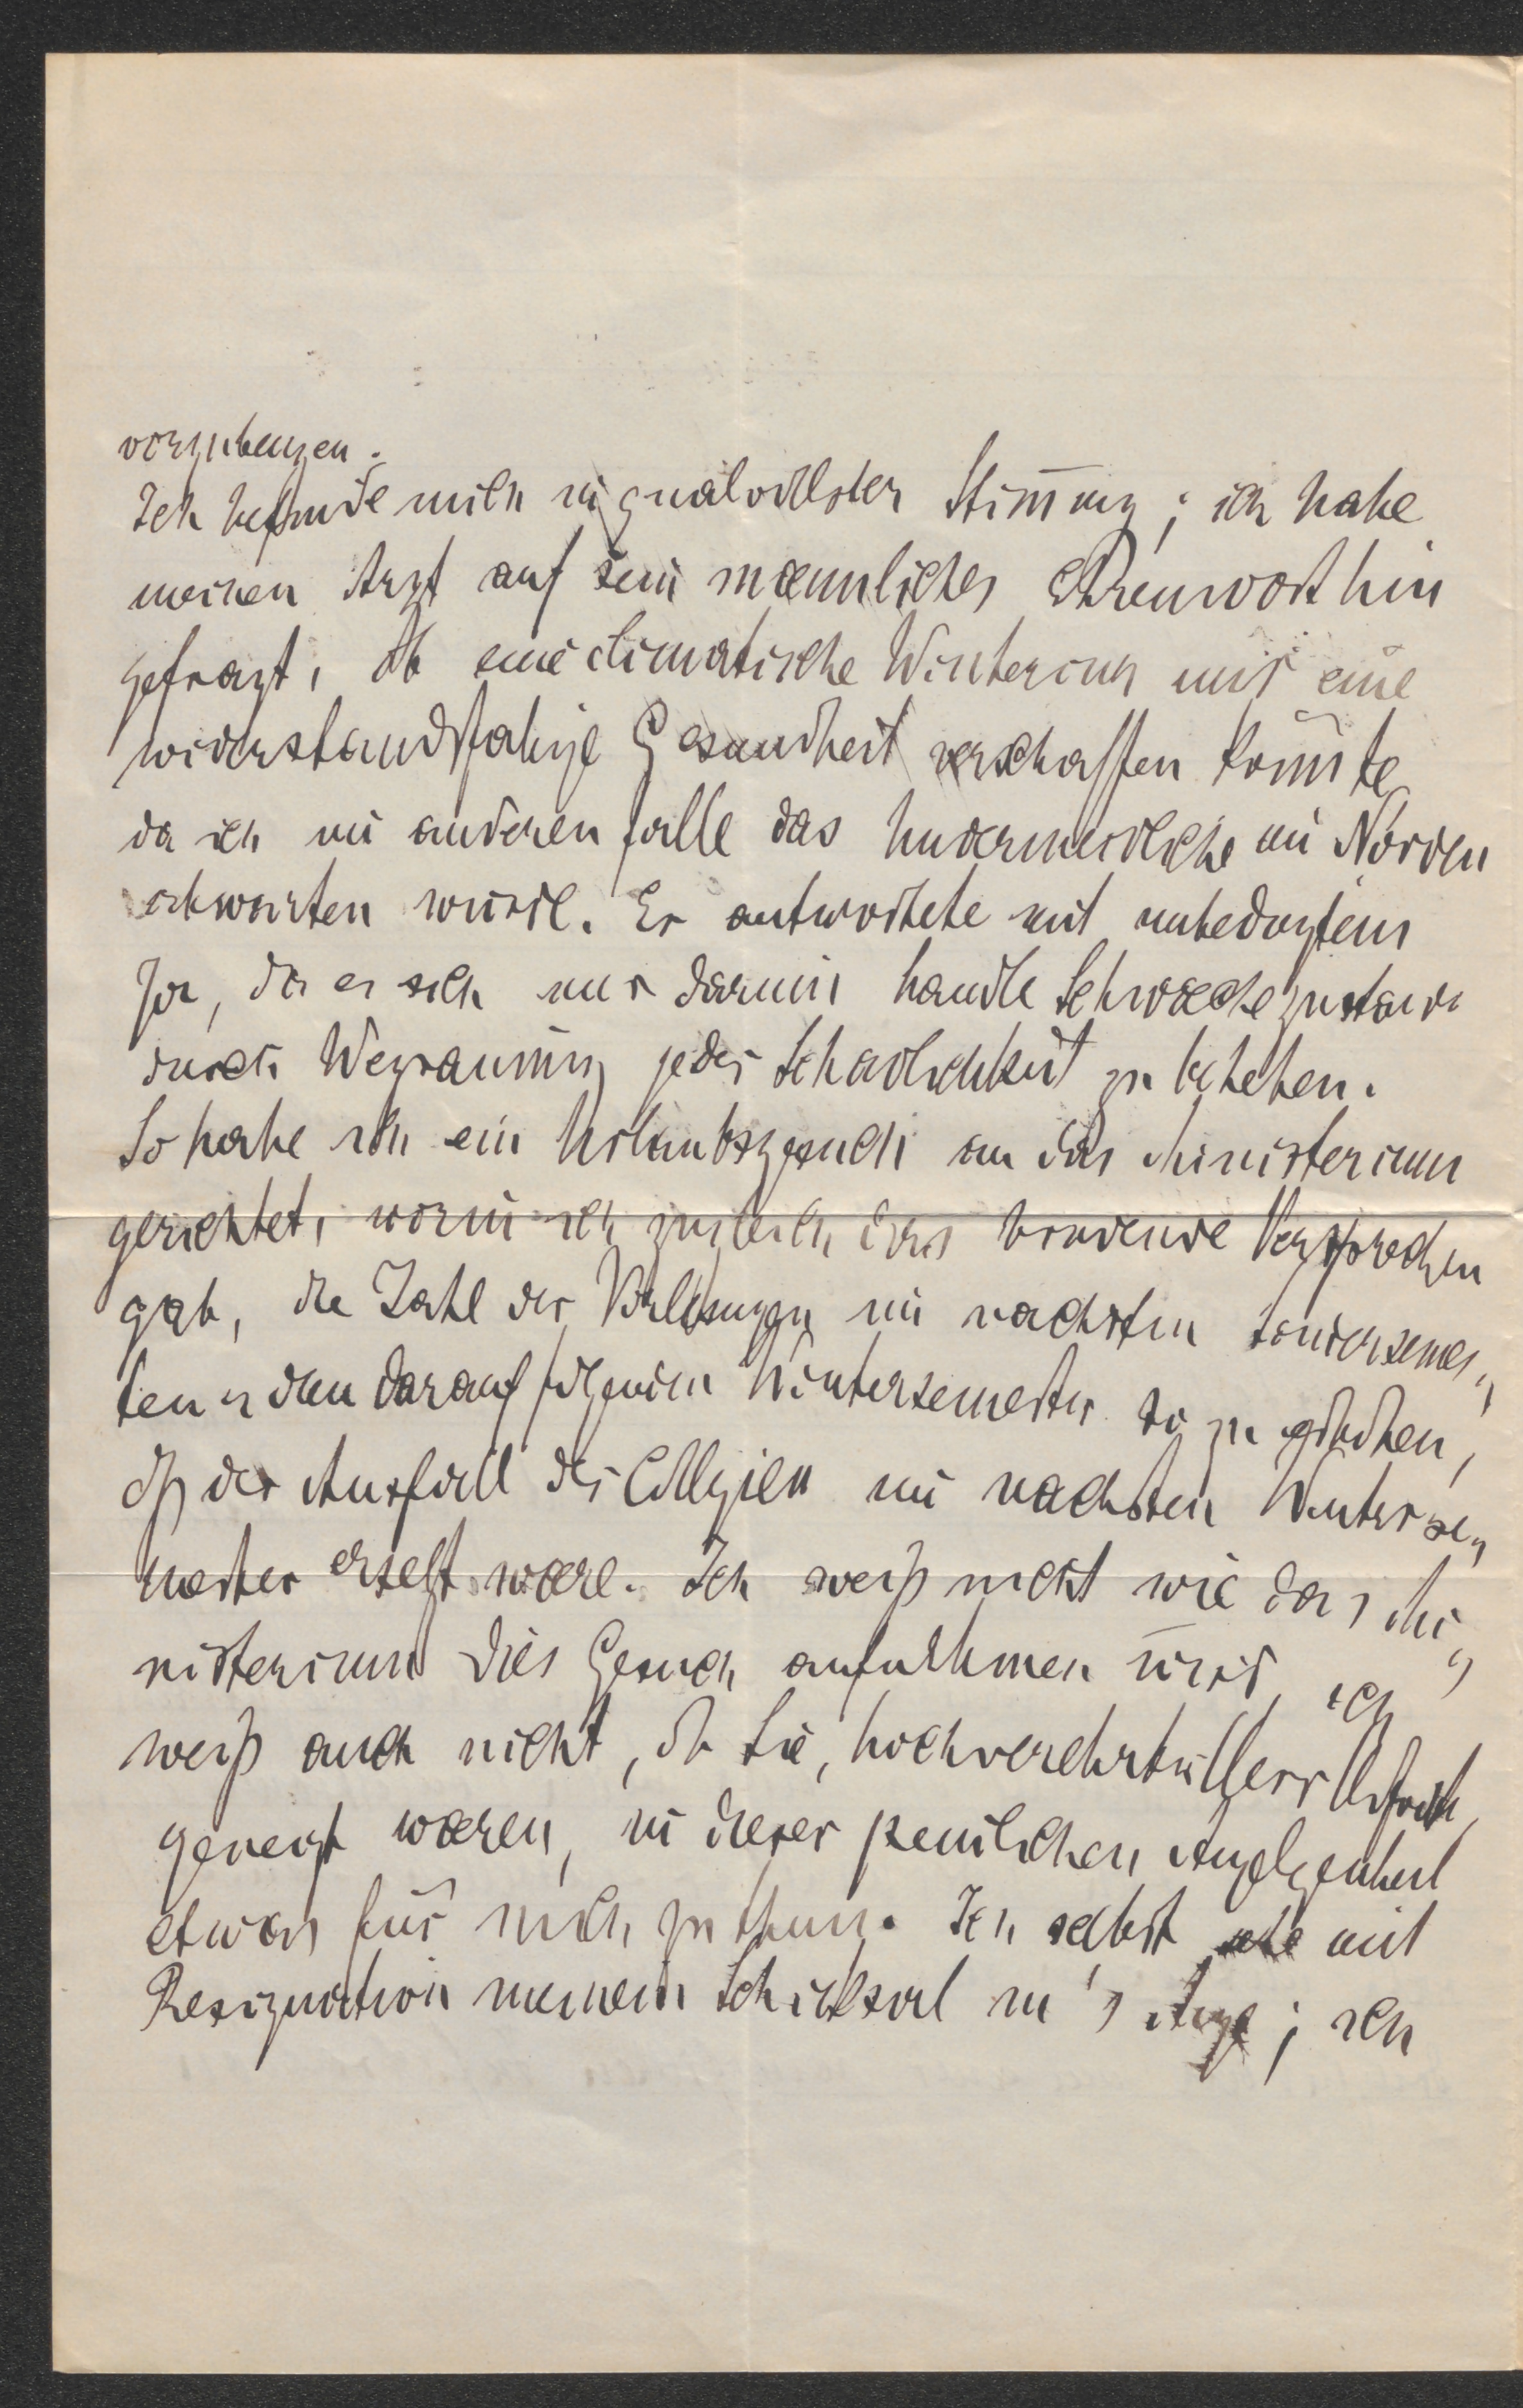 vorzubeugen.
Ich befinde mich in qualvollster Stimmung; ich habe
meinen Arzt auf sein maennliches Ehrenwort hin
gefragt, ob eine climatische Wintercur mir eine
widerstandsfähige Gesundheit verschaffen könnte,
da ich im anderen falle das Unvermeidliche im Norden
abwarten würde. Er antwortete mit unbedingtem
Ja, da es sich nur darum handle Schwaechezustand
durch Wegraumung jeder Schadlichkeit zu beheben.
So habe ich ein Urlaubsgesuch an das Ministerium
gerichtet, worin ich zugleich das bindende Versprechen
gab, die Zahl der Vorlesungen im nachsten Somersemes„
ter u dem darauf folgenden Wintersemester so zu erhöhen,
daß der Ausfall der Collegien im nachsten Winterse„
mester ersetzt waere. Ich weiß nicht wie das Mi„
nisterium dies Gesuch aufnehmen wird, ich
weiß auch nicht, ob Sie, hochverehrter Herr
geneigt waeren, in dieser peinlichen Angelegenheit
etwas für mich zu thun. Ich selbst sehe mit
Resignation meinem Schicksal in's Auge; ich